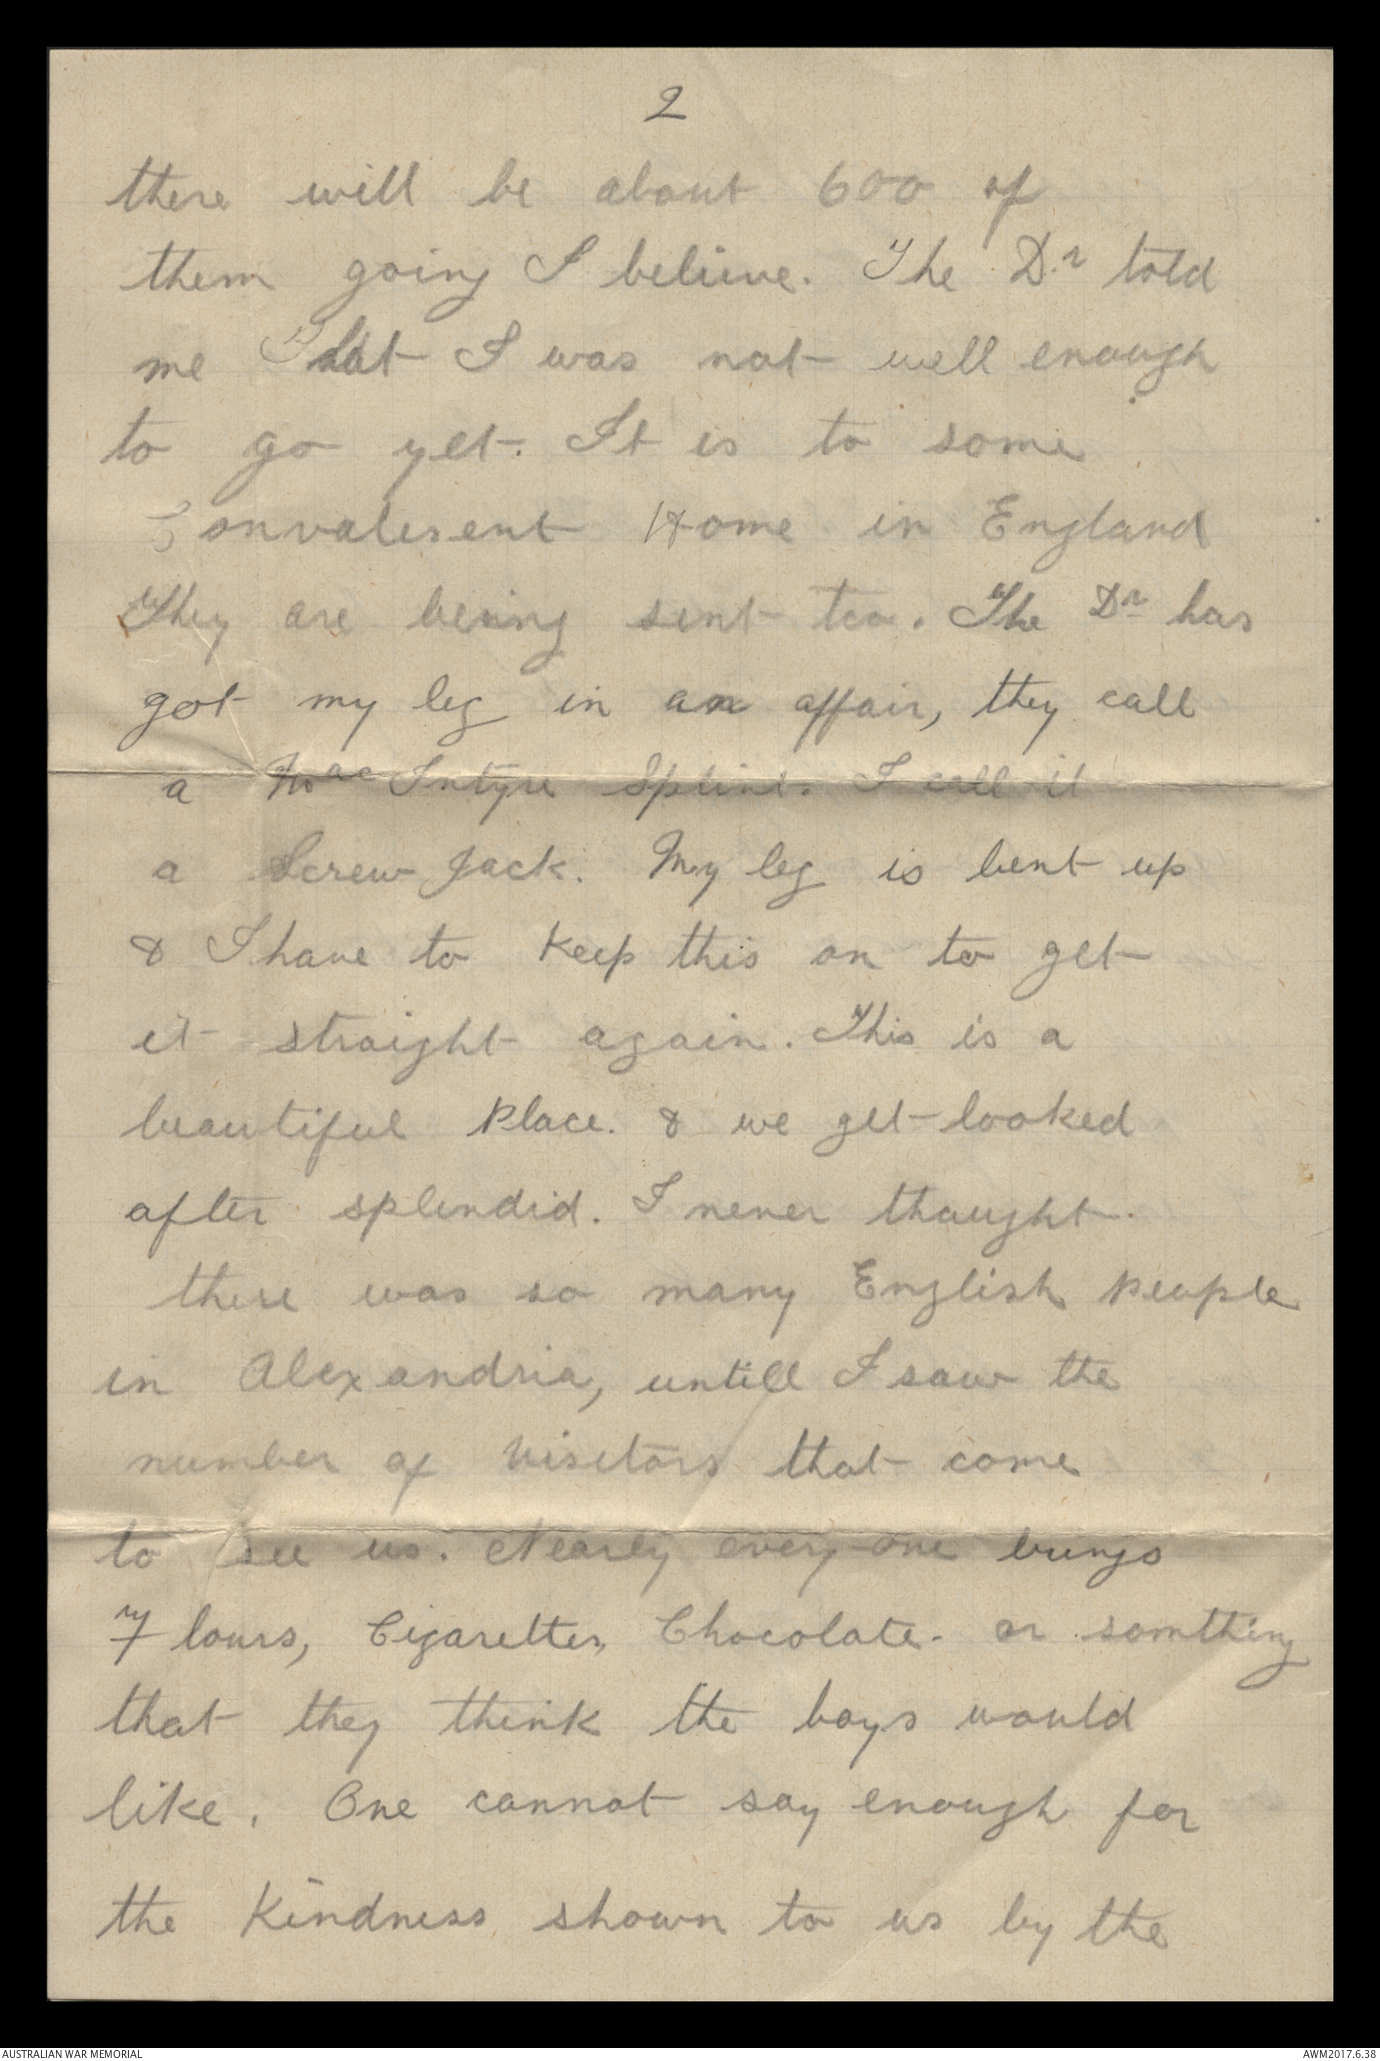 2
there will be about 600 of
them going I believe. The Dr told
me that I was not well enough
to go yet. It is to some
Convalesent Home in England
They are being sent too. The Dr has
got my leg in an affair, they call
a MacIntyre Splint. I call it
a Screw Jack. My leg is bent up
& I have to keep this on to get
it straight again. This is a
beautiful place. & we get looked
after splendid. I never thought.
there was so many English people
in Alexandria, untill I saw the
number of visitors that come
to see us. Nearly every-one brings
Flours, Cigarettes, Chocolate. or somthing
that they think the boys would
like. One cannot say enough for
the kindness shown to us by the
AUSTRALIAN WAR MEMORIAL
AWM2017.6.38